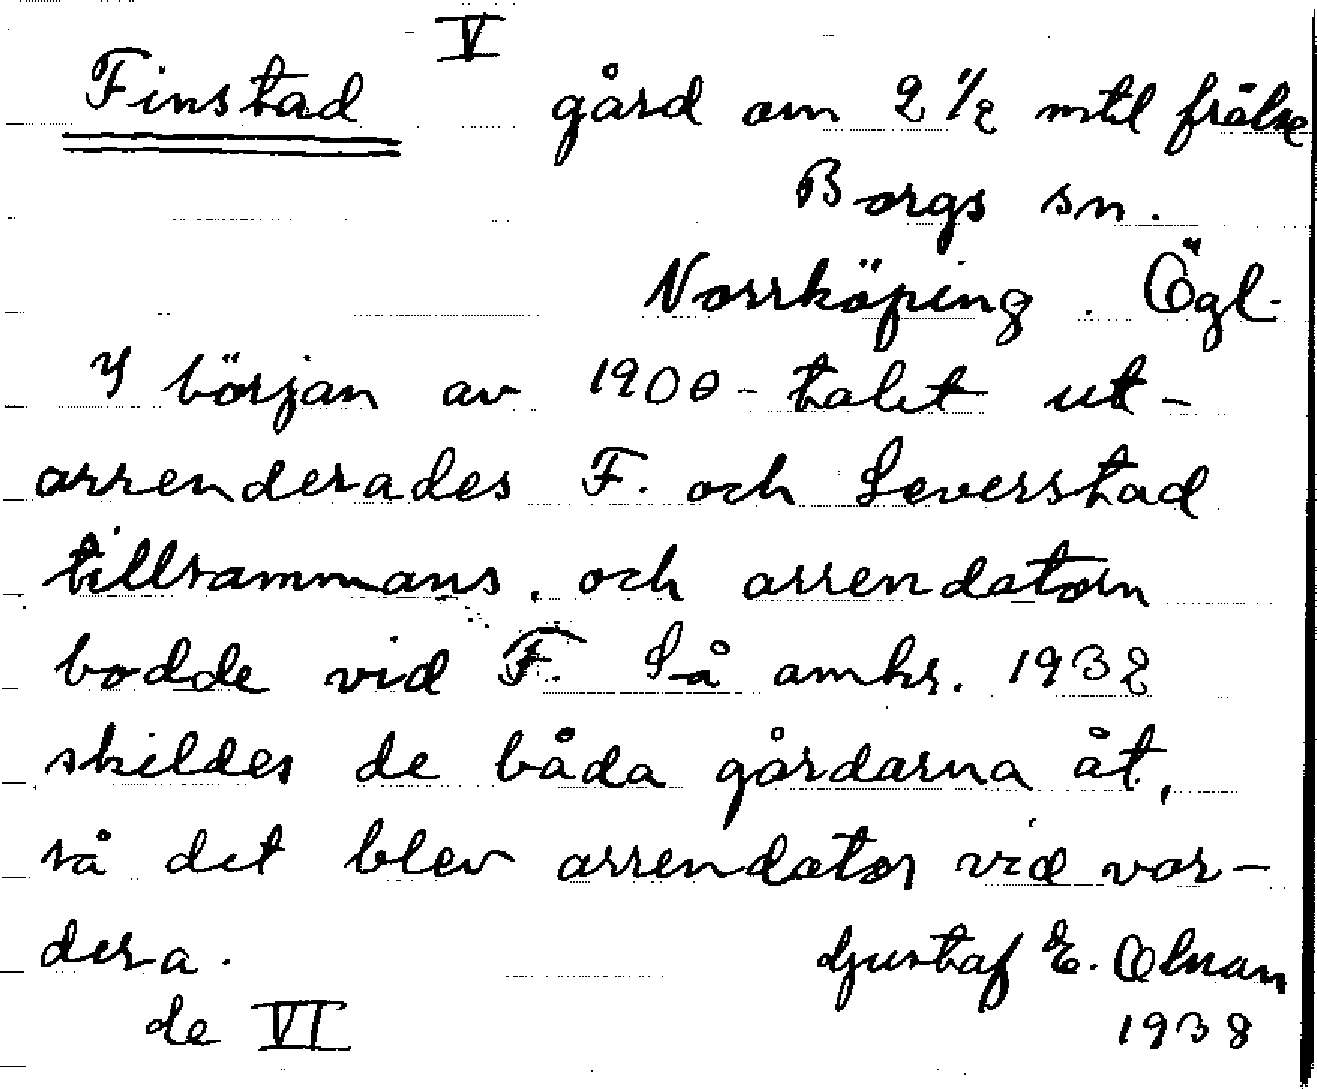 Finstad V gård om 2 1/2 mtl frälse
Borgs sn.
Norrköping. Ögl.
I början av 1900-talet ut-
arrenderades F. och Leverstad
tillsammans, och arrendatorn
bodde vid F. Så omkr. 1932
skildes de båda gårdarna åt,
så det blev arrendator vid var-
dera.
Gustaf E. Ohman
de VI
1938